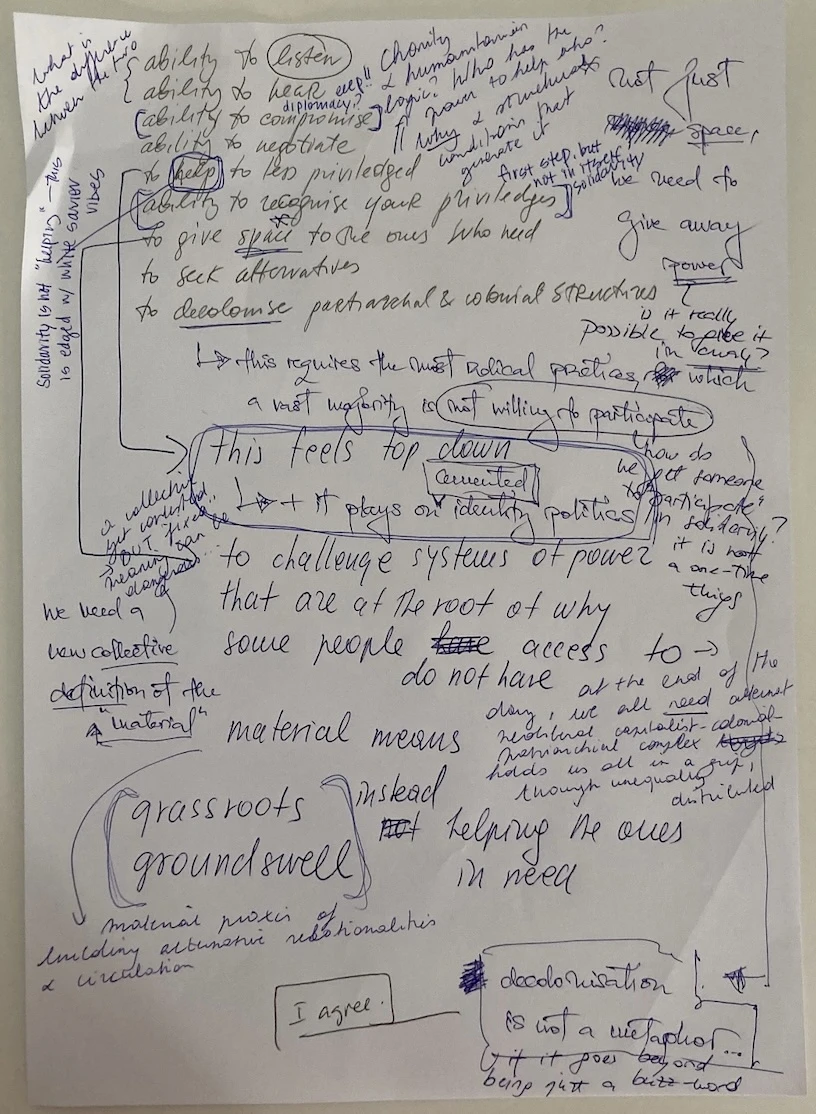 What is
the difference
between the two
ability to listen
ability to hear
[ability to compromise]
eeep!!
diplomacy?
ability to negotiate
to help to less priviledged
ability to recognise your priviledges]
to give space* to the ones who need
to seek alternatives
to decolonise patriarchal & colonial structures
Charity
& humanitarian
logic? Who has the
power to help who?
Why & structural
conditions that
generate it
first step, but
not in itself
solidarity
not just
space,
we need to
give away
power
is it really
possible to give it
away?
Solidarity is not "helping" – this
is edged w/ white savior
vibes
↳ this requires the most radical practices, in which
a vast majority is not willing to participate
this feels top down
cemented
↳ + it plays on identity politics
how do
we get someone
to "participate"
in solidarity?
it is not
a one-time
things
a collective
get
→ BUT fixed
meaning can be
dangerous...
to challenge systems of power
that are at the root of why
some people have access to →
do not have
material means
we need a
new collective
definition of the
"material"
at the end of the
day, we all need
neoliberal capitalist-colonial-
patriarchal complex
holds us all in a grip,
though unequally
distributed
[grassroots
groundswell]
instead
not helping the ones
in need
material praxis of
building alternative relationalities
& circulation
I agree.
decolonisation
is not a metaphor...
if it goes beyond
being just a buzz-word